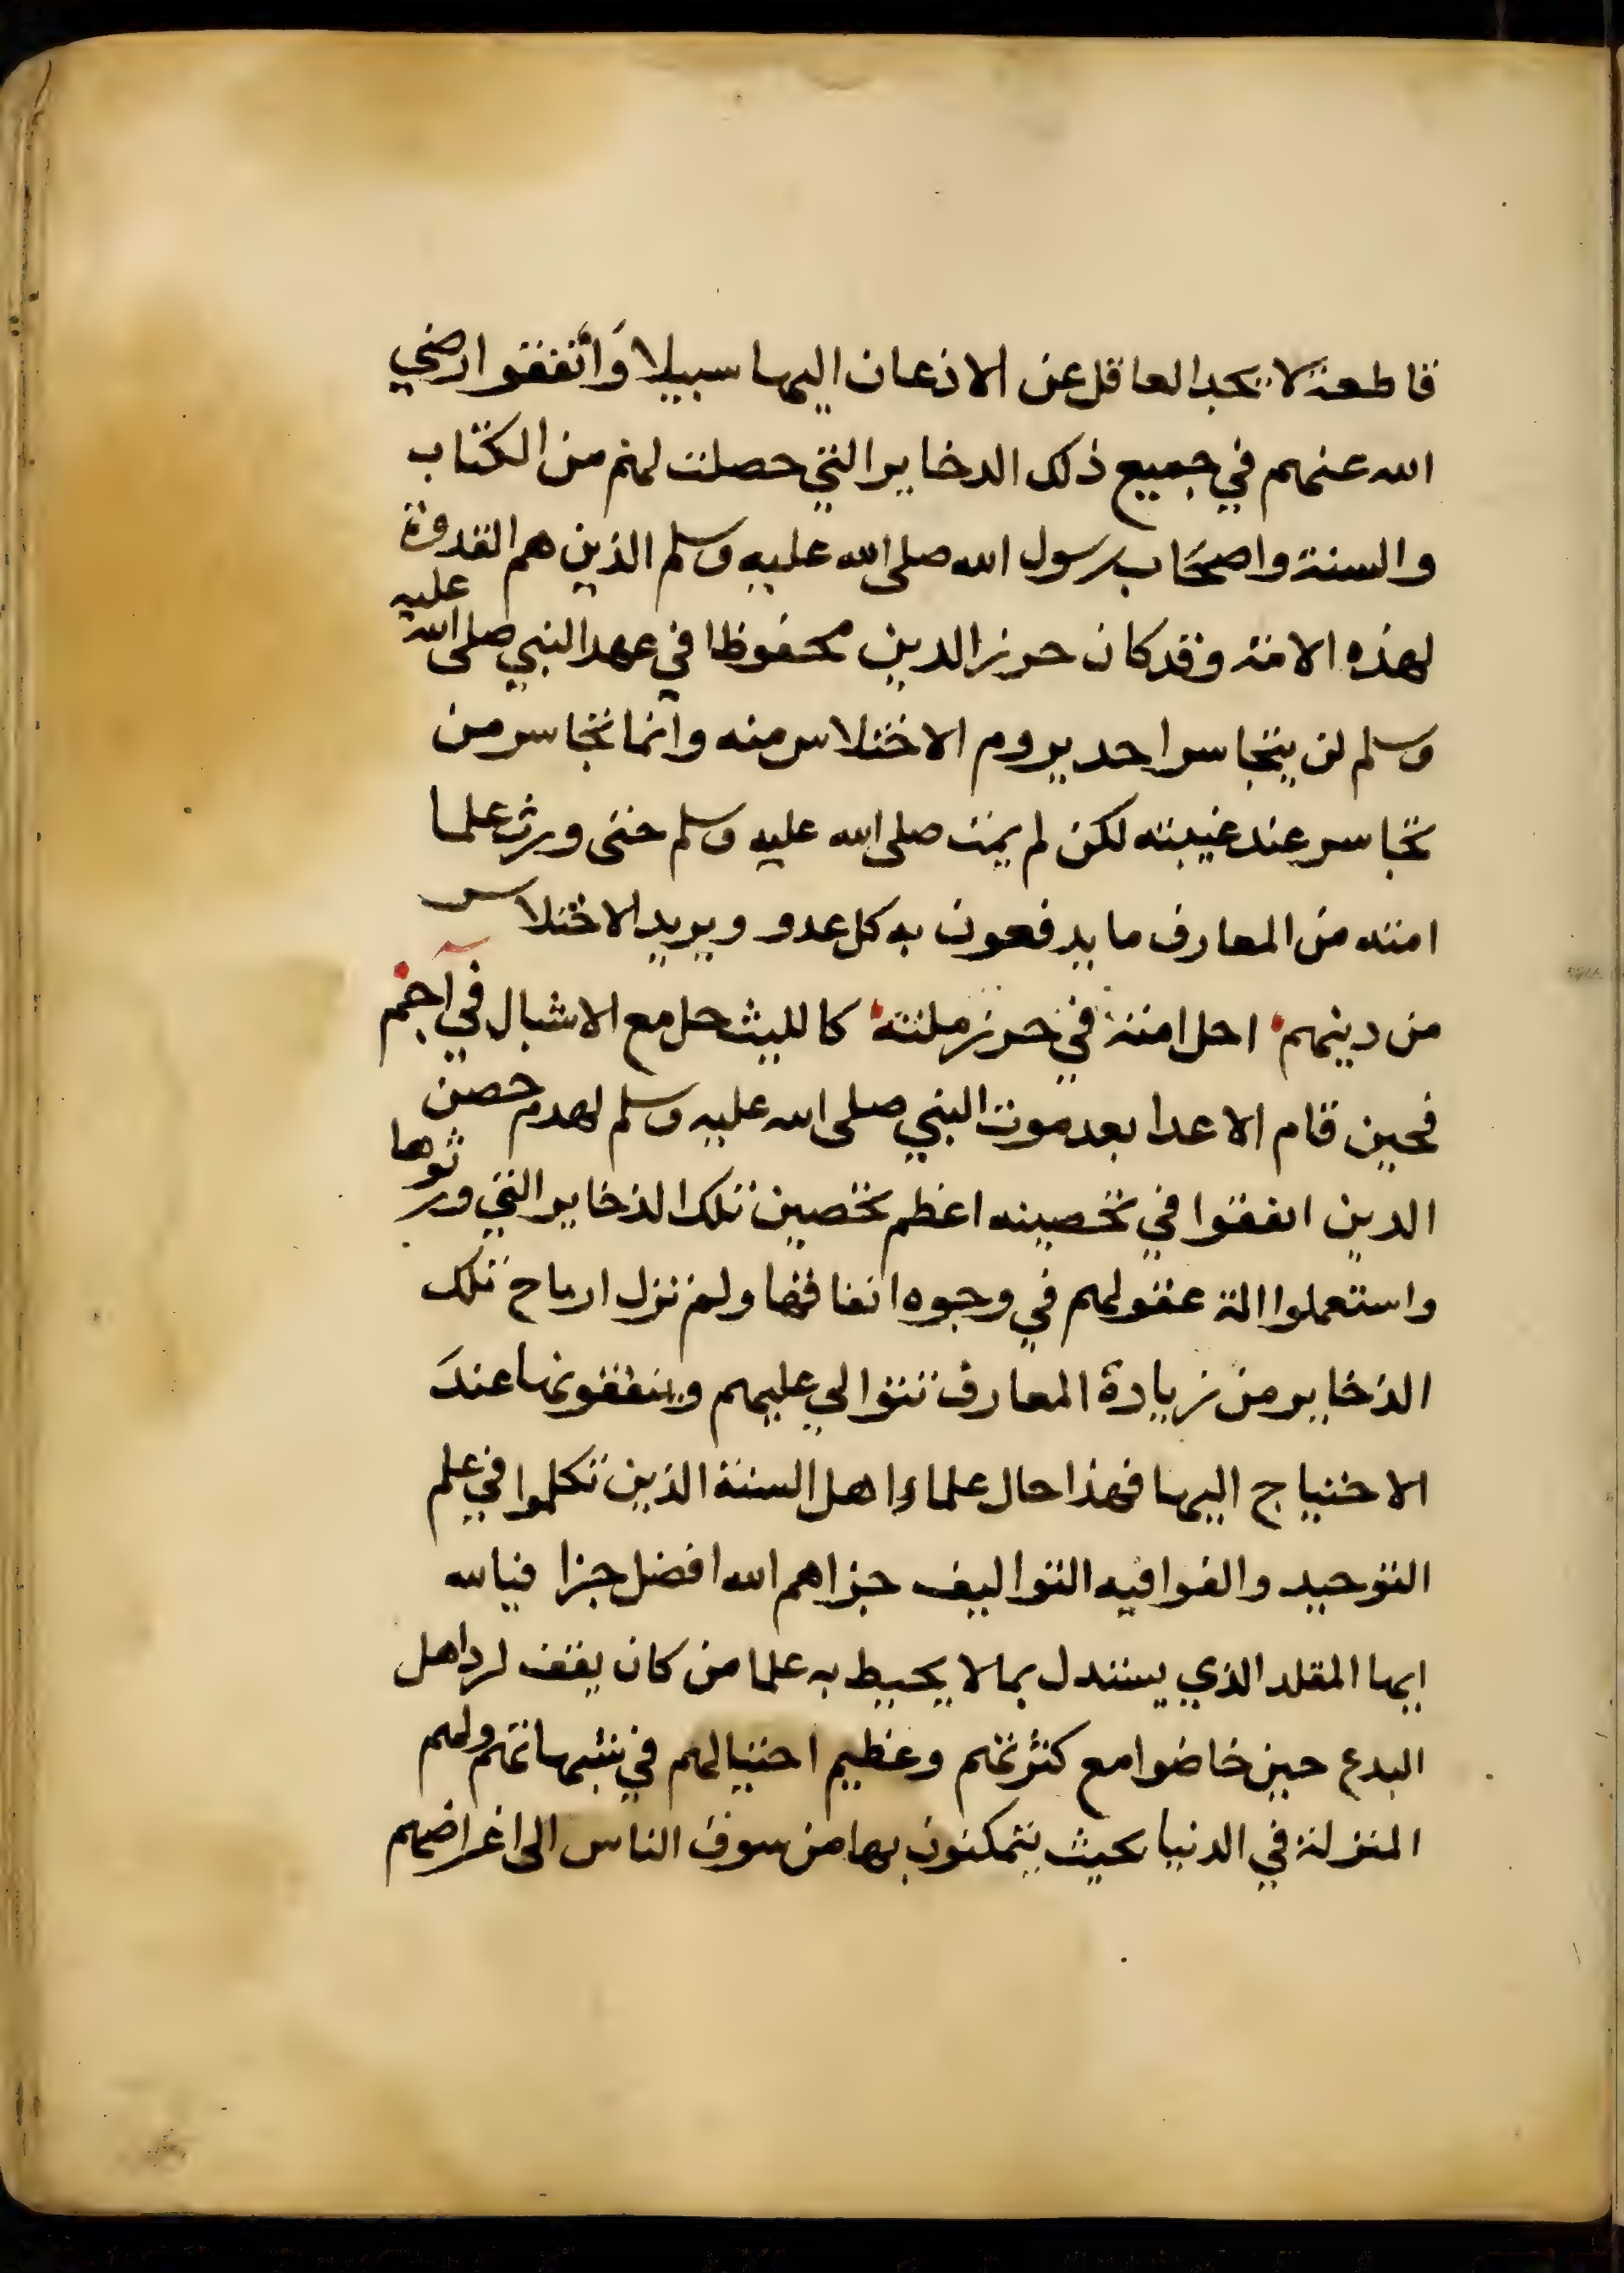 قاطعة لا يجد العاقل عن الاذعان اليها سبيلا وَأنفقوا رضي
الله عنهم في جميع ذلك الدخاير التي حصلت لهم من الكتاب
والسنة واصحَاب رسول الله صلى الله عليه وسلم الذين هم القدوة
لهذه الامة وقد كان حرز الدين محفوظا في عهد النبي صلى الله عليه
وسلم لن يتجاسر احد يروم الاختلاس منه وانما تجاسر من
تجاسر عند غيبته لكن لم يمت صلى الله عليه وسلم حتى ورث علما
امته من المعارف ما يدفعون به كل عدو ويريد الاختلاس
من دينهم احل امته في حرز ملته كالليث حل مع الاشبال في آجم
فحين قام الاعدا بعد موت النبي صلى الله عليه وسلم لهدم حصن
الدين انفقوا في تحصينه اعظم تحصين تلك الذخاير التي ورثوها
واستعملوا الة عقولهم في وجوه انفاقها ولم تزل ارباح تلك
الذخاير من زيادة المعارف تتوالي عليهم وينفقونها عندَ
الاحتياج اليها فهذا حال علماء اهل السنة الذين تكلموا في علم
التوحيد والفوا فيه التواليف جزاهم الله افضل جزا فيالله
ايها المقلد الذي يستدل بما لا يحيط به علما من كان يقف لرد اهل
البدع حين خاضوا مع كثرتهم وعظيم احتيالهم في شبهاتهم ولهم
المنزلة في الدنيا بحيث يتمكنون بها من سوق الناس الى اغراضهم